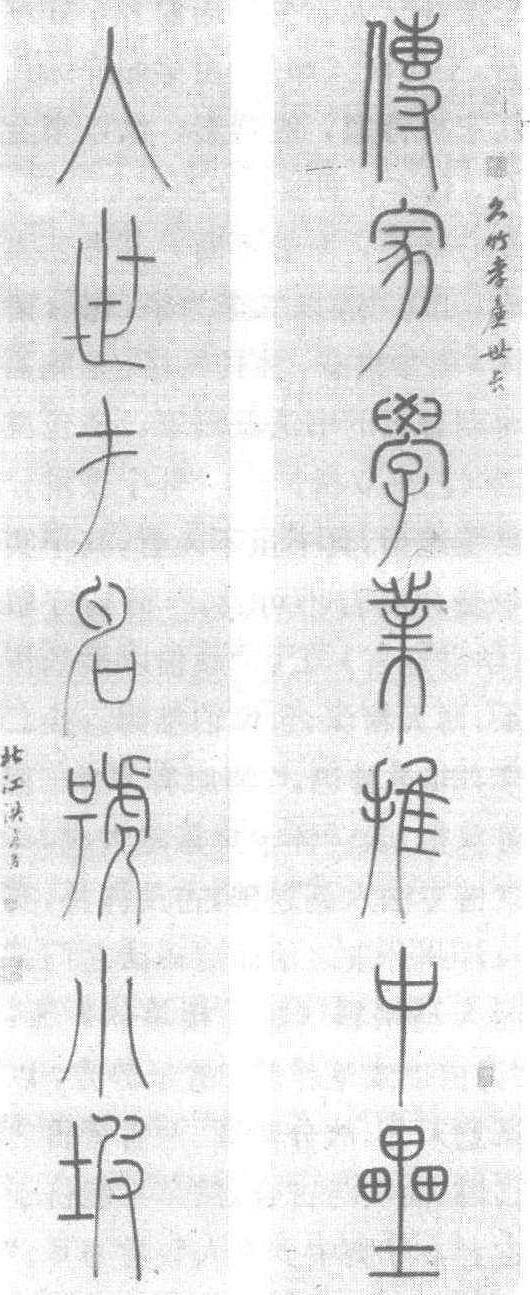 竹孝廉世長
傳家學業推中壘
入世才名號小坡
北江洪亮吉